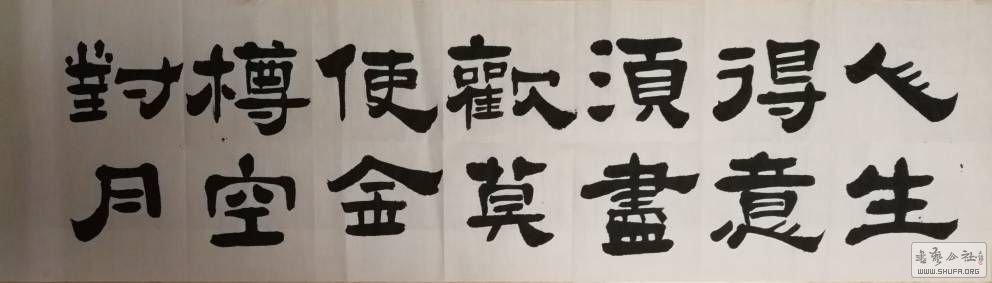 人生
得意
湏盡
歡莫
使金
樽空
對月
书艺公社
WWW.SHUFA.ORG